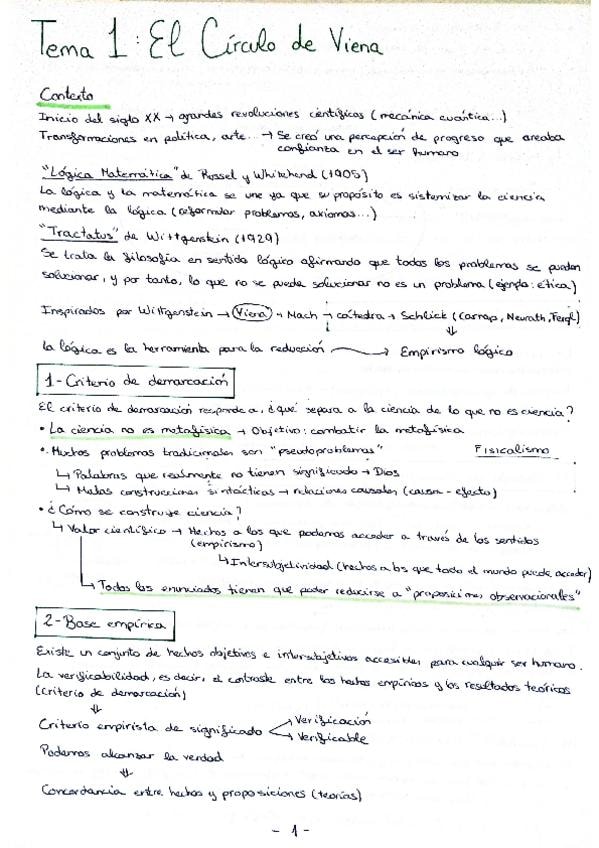 Tema 1: El Círculo de Viena
Contexto
Inicio del siglo XX → grandes revoluciones científicas (mecánica cuántica...)
Transformaciones en política, arte... → Se creó una percepción de progreso que creaba
confianza en el ser humano
"Lógica Matemática" de Rossel y Whitehend (1905)
La lógica y la matemática se une ya que su propósito es sistemizar la ciencia
mediante la lógica (reformular problemas, axiomas...)
"Tractatus" de Wittgenstein (1929)
Se trata la filosofía en sentido lógico afirmando que todos los problemas se pueden
solucionar, y por tanto, lo que no se puede solucionar no es un problema (ejemplo: ética)
Inspirados por Wittgenstein → Viena → Mach → cátedra → Schlick (Carnap, Neurath, Feigl)
La lógica es la herramienta para la reducción → Empirismo lógico
1-Criterio de demarcación
El criterio de demarcación responde a, ¿qué separa a la ciencia de lo que no es ciencia?
• La ciencia no es metafísica → Objetivo: combatir la metafísica
• Muchos problemas tradicionales son "pseudoproblemas" Fisicalismo
↳ Palabras que realmente no tienen significado → Dios
↳ Malas construcciones sintácticas → relaciones causales (causa-efecto)
• ¿Cómo se construye ciencia?
↳ Valor científico → Hechos a los que podemos acceder a través de los sentidos
(empirismo)
↳ Intersubjetividad (hechos a los que todo el mundo puede acceder)
↳ Todos los enunciados tienen que poder reducirse a "proposiciones observacionales"
2-Base empírica
Existe un conjunto de hechos objetivos e intersubjetivos accesibles para cualquier ser humano.
La verificabilidad, es decir, el contraste entre los hechos empíricos y los resultados teóricos
(Criterio de demarcación)
Criterio empirista de significado → Verificación
→ Verificable
Podemos alcanzar la verdad
Concordancia entre hechos y proposiciones (teorías)
- 1 -